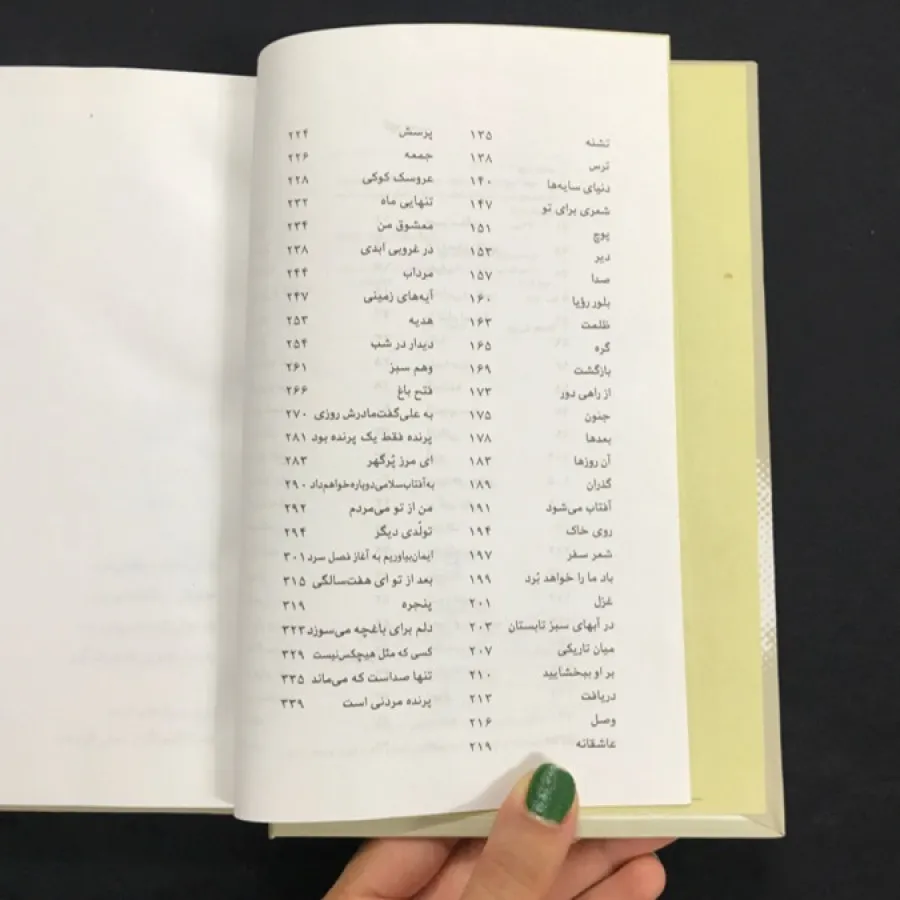 تشنه ۱۳۵
ترس ۱۳۸
دنیای سایه‌ها ۱۴۰
شعری برای تو ۱۴۷
پوچ ۱۵۱
دیر ۱۵۳
صدا ۱۵۷
بلور رؤیا ۱۶۰
ظلمت ۱۶۳
گره ۱۶۵
بازگشت ۱۶۹
از راهی دور ۱۷۳
جنون ۱۷۵
بعدها ۱۷۸
آن روزها ۱۸۳
گذران ۱۸۹
آفتاب می‌شود ۱۹۱
روی خاک ۱۹۴
شعر سفر ۱۹۷
باد ما را خواهد بُرد ۱۹۹
غزل ۲۰۱
در آبهای سبز تابستان ۲۰۳
میان تاریکی ۲۰۷
بر او ببخشایید ۲۱۰
دریافت ۲۱۳
وصل ۲۱۶
عاشقانه ۲۱۹
پرسش ۲۲۴
جمعه ۲۲۶
عروسک کوکی ۲۲۸
تنهایی ماه ۲۳۲
معشوق من ۲۳۴
در غروبی ابدی ۲۳۸
مرداب ۲۴۴
آیه‌های زمینی ۲۴۷
هدیه ۲۵۳
دیدار در شب ۲۵۴
وهم سبز ۲۶۱
فتح باغ ۲۶۶
به علی‌گفت‌مادرش روزی ۲۷۰
پرنده فقط یک پرنده بود ۲۸۱
ای مرز پُرگهر ۲۸۳
به‌آفتاب‌سلامی‌دوباره‌خواهم‌داد ۲۹۰
من از تو می‌مردم ۲۹۲
تولّدی دیگر ۲۹۴
ایمان‌بیاوریم به آغاز فصل سرد ۳۰۱
بعد از تو ای هفت‌سالگی ۳۱۵
پنجره ۳۱۹
دلم برای باغچه می‌سوزد ۳۲۳
کسی که مثل هیچکس‌نیست ۳۲۹
تنها صداست که می‌ماند ۳۳۵
پرنده مردنی است ۳۳۹